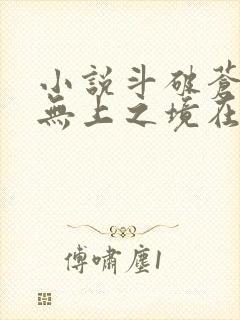 小說斗破蒼
無上之境在
傅嘯塵1